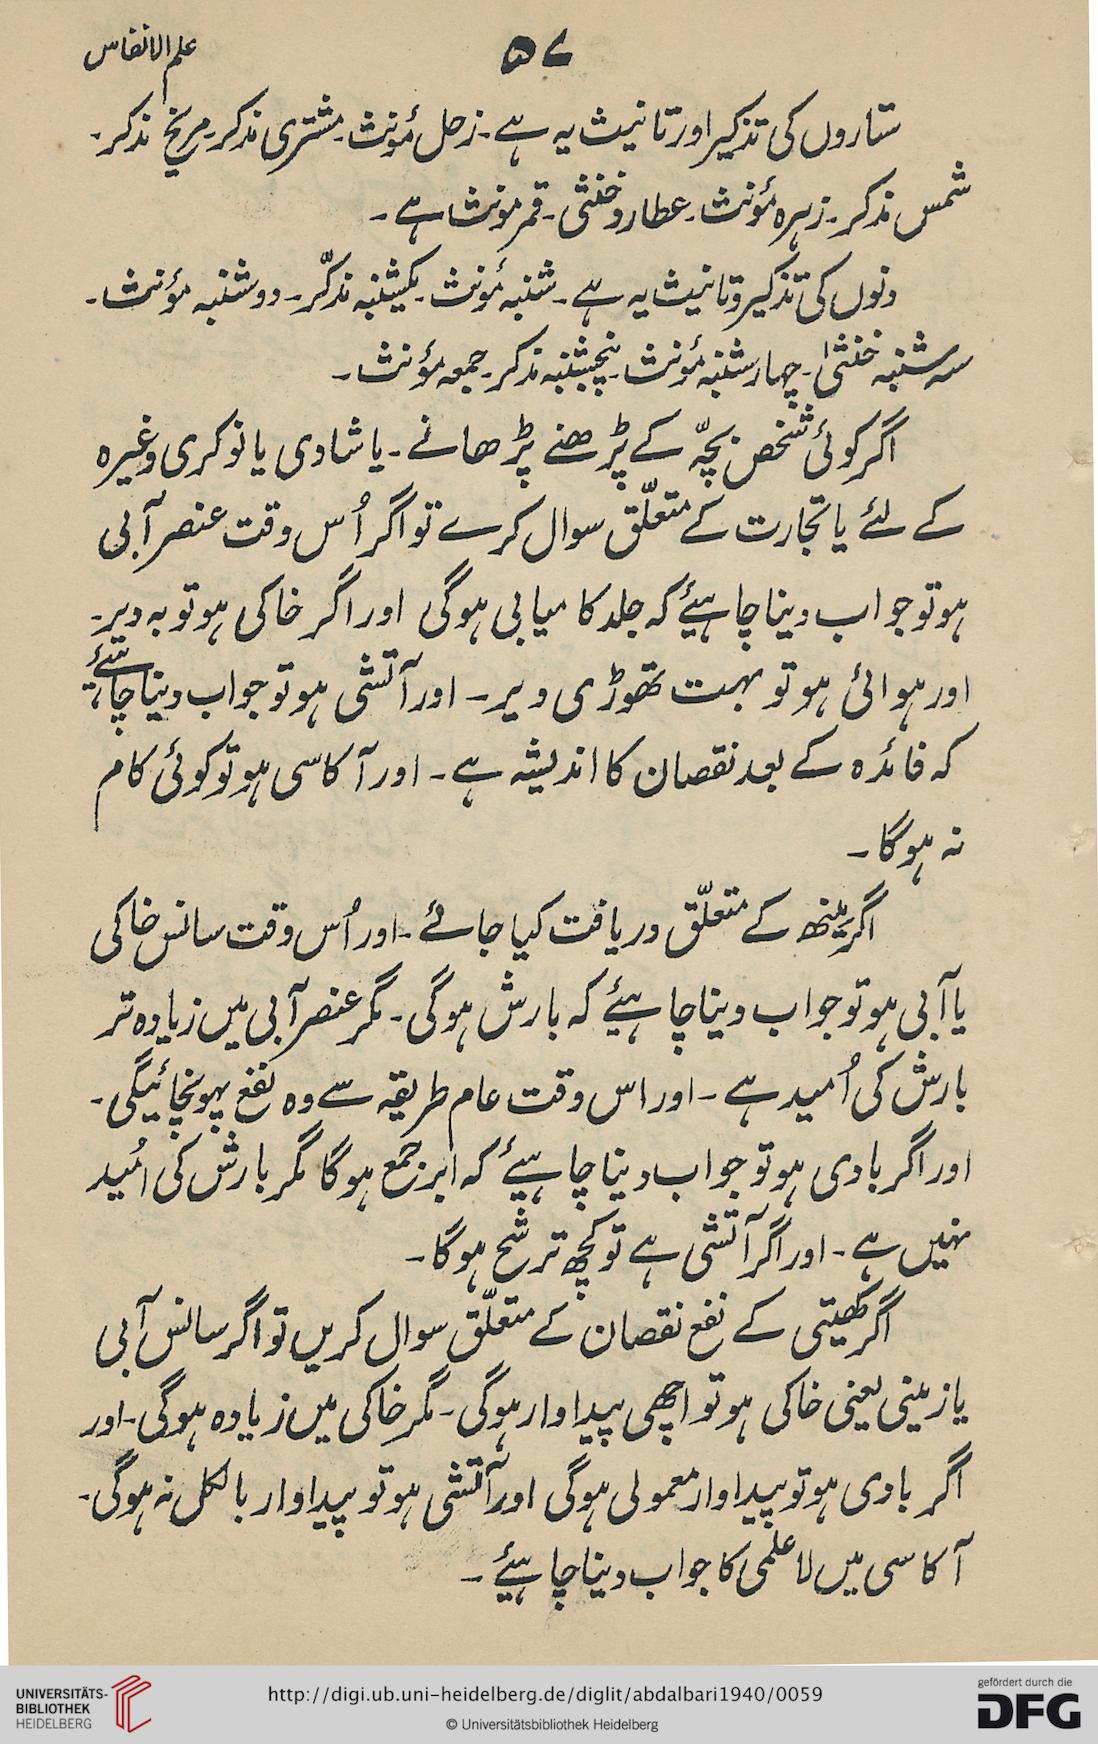 علم الانفاس
۵۷
ستاروں کی تذکیر اور تانیث یہ ہے۔ زحل مؤنث۔ مشتری مذکر۔ مریخ مذکر۔
شمس مذکر۔ زہرہ مؤنث۔ عطارد خنثی۔ قمر مؤنث ہے۔
دنوں کی تذکیر و تانیث یہ ہے۔ شنبہ مؤنث۔ یکشنبہ مذکّر۔ دوشنبہ مؤنث۔
سہ شنبہ خنثیٰ۔ چہار شنبہ مؤنث۔ پنچشنبہ مذکر۔ جمعہ مؤنث۔
اگر کوئی شخص بچّہ کے پڑھنے پڑھانے۔ یا شادی یا نوکری وغیرہ
کے لئے یا تجارت کے متعلّق سوال کرے تو اگر اُس وقت عنصر آبی
ہو تو جواب دینا چاہیئے کہ جلد کامیابی ہوگی اور اگر خاکی ہو تو بہ دیر۔
اور ہوائی ہو تو بہت تھوڑی دیر۔ اور آتشی ہو تو جواب دینا چاہئیے
کہ فائدہ کے بعد نقصان کا اندیشہ ہے۔ اور آکاسی ہو تو کوئی کام
نہ ہوگا۔
اگر مینھ کے متعلّق دریافت کیا جائے۔ اور اُس وقت سانس خاکی
یا آبی ہو تو جواب دینا چاہیئے کہ بارش ہوگی۔ مگر عنصر آبی میں زیادہ تر
بارش کی اُمید ہے۔ اور اس وقت عام طریقہ سے وہ نفع پہونچائیگی۔
اور اگر بادی ہو تو جواب دینا چاہیئے کہ ابر جمع ہوگا مگر بارش کی اُمید
نہیں ہے۔ اور اگر آتشی ہے تو کچھ ترشح ہوگا۔
اگر کھیتی کے نفع نقصان کے متعلّق سوال کریں تو اگر سانس آبی
یا زمینی یعنی خاکی ہو تو اچھی پیداوار ہوگی۔ مگر خاکی میں زیادہ ہوگی۔ اور
اگر بادی ہو تو پیداوار معمولی ہوگی اور آتشی ہو تو پیداوار بالکل نہ ہوگی۔
آکاسی میں لا علمی کا جواب دینا چاہیئے۔
UNIVERSITÄTS-
BIBLIOTHEK
HEIDELBERG
http://digi.ub.uni-heidelberg.de/diglit/abdalbari1940/0059
© Universitätsbibliothek Heidelberg
gefördert durch die
DFG